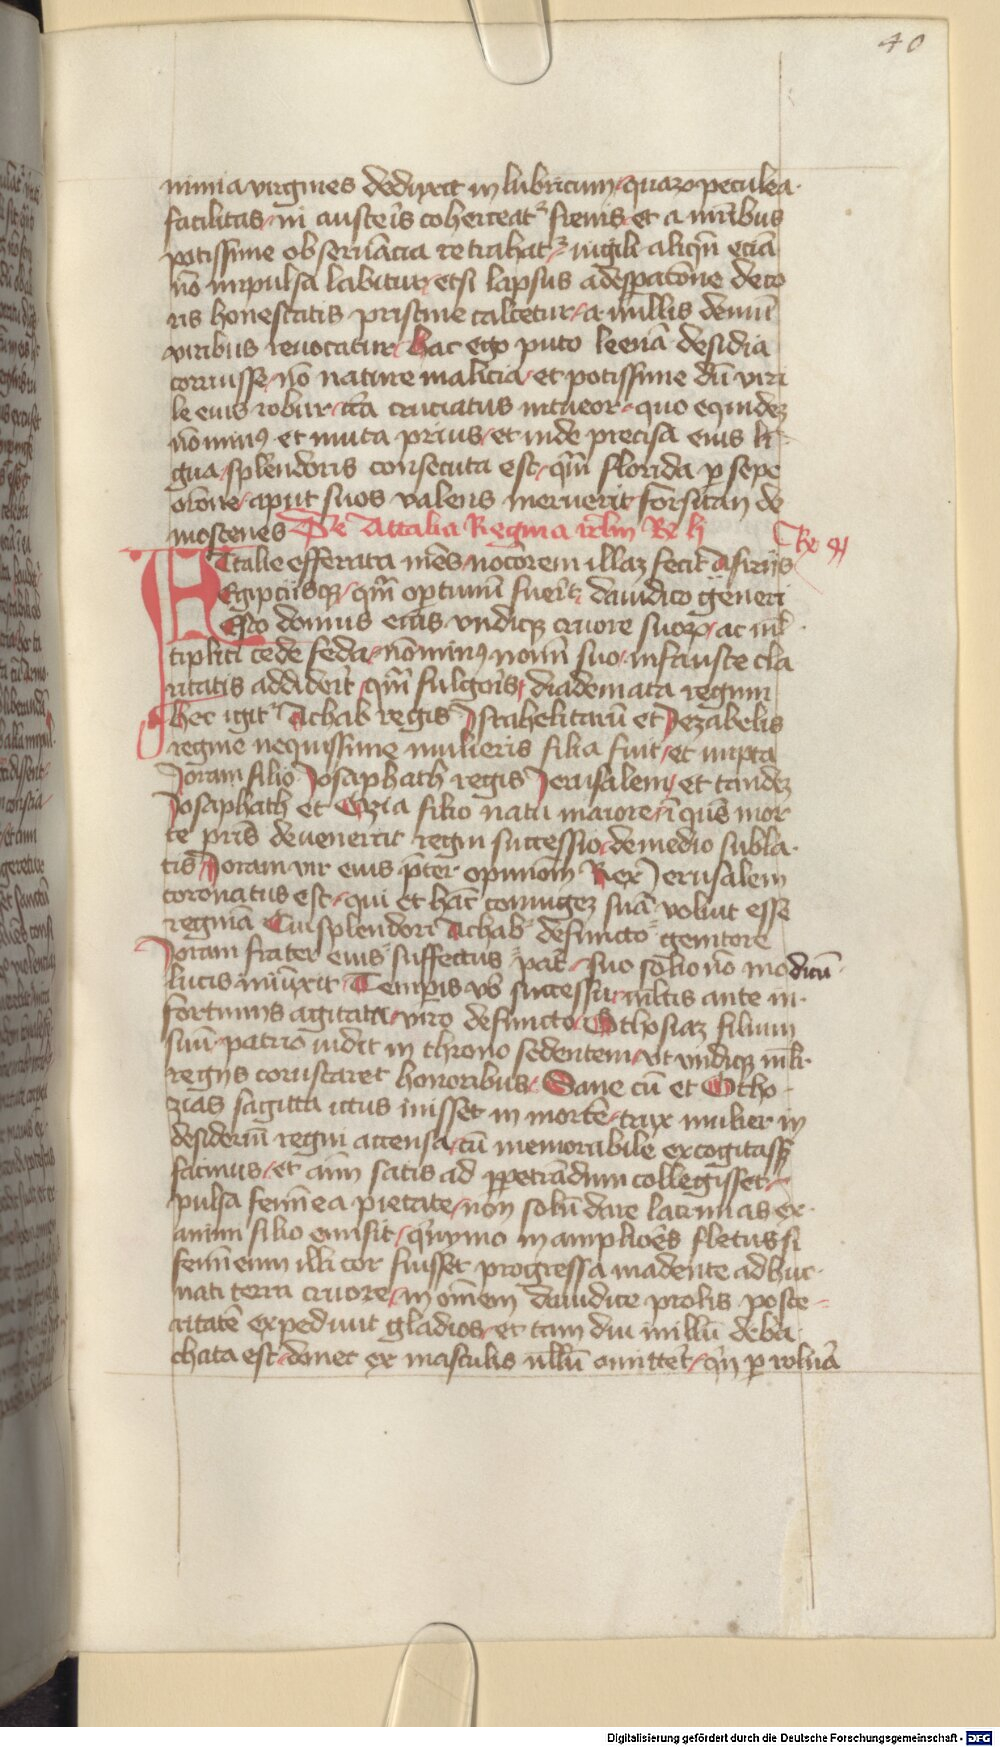 40
nimia virgines deduxit in lubricum quaꝝ petulca
facilitas ni austeris coherceatᷣ frenis et a mr̄ibus
potissime obseruācia retrahatᷣ iugili aliqn̄ eciā
nō impulsa labitur et si lapsus a desperatōne deco
ris honestatis pristine calcetur a nullis demū
viribus reuocatur hac ego puto leenā desidia
corruisse nō nature malicia et potissime dū viri
le eius robur īter cruciatus intueor quo equidē
nō minus et muta prius et inde precisa eius li
gua splendoris consecuta est qm̄ florida ꝑ sepe
orōne aput suos valens meruerit forsitan de
mostenes De Attalia Regina irlm̄ Re li
Re
Attalie efferata mēs nociorem illaꝫ fecit asirijs
Egipcijsqꝫ qm̄ optimū fueīt dauidico generi
Esto domus eius vndiqꝫ cruore suoꝝ ac ml̄
tiplici cede feda nō minus nomī suo infauste cla
ritatis addiderīt qm̄ fulgoris diademata regum
hec igitᷣ Achab regis Israhelitarū et Jezabelis
regine nequissime mulieris filia fuit et nupta
Joram filio Josaphath regis Jerusalem et tandē
Josaphath et Ozia filio natu maiore ī quēs mor
te pr̄is deuenerat regni successio de medio subla
tis Joram vir eius p̄ter opiniōm Rex Jerusalem
coronatus est qui et hāc coniugeꝫ suā voluit esse
reginā Cui splendori Achab defuncto genitore
Joram frater eius suffectus pat̄ suo solio nō modicū
lucis iniūxit Tempis v̄o successu ml̄tis ante in
fortunijs agitata viro defuncto Othosiaꝫ filium
suū patrio vidit in throno sedentem vt vndiqꝫ ml̄r
regijs coruscaret honoribus Sane cū et Otho
zias sagitta ictus iuisset in mortē trux mulier in
desideriū regni accensa cū memorabile excogitassꝫ
facinus et aīm satis ad ꝑpetrādum collegisset
pulsa femīea pietate non solū dare lacrimas ex
animi filio emisit qn̄ymo in ampliōes fletus si
femīeum illi cor fuisset progressa madente adhuc
nati terra cruore in oīem dauidice prolis poste
ritatē expediuit gladios et tam diu in illū deba
chata est donec ex masculis nullū omitteīt qn̄ ꝑ roīuā
Digitalisierung gefördert durch die Deutsche Forschungsgemeinschaft - DFG